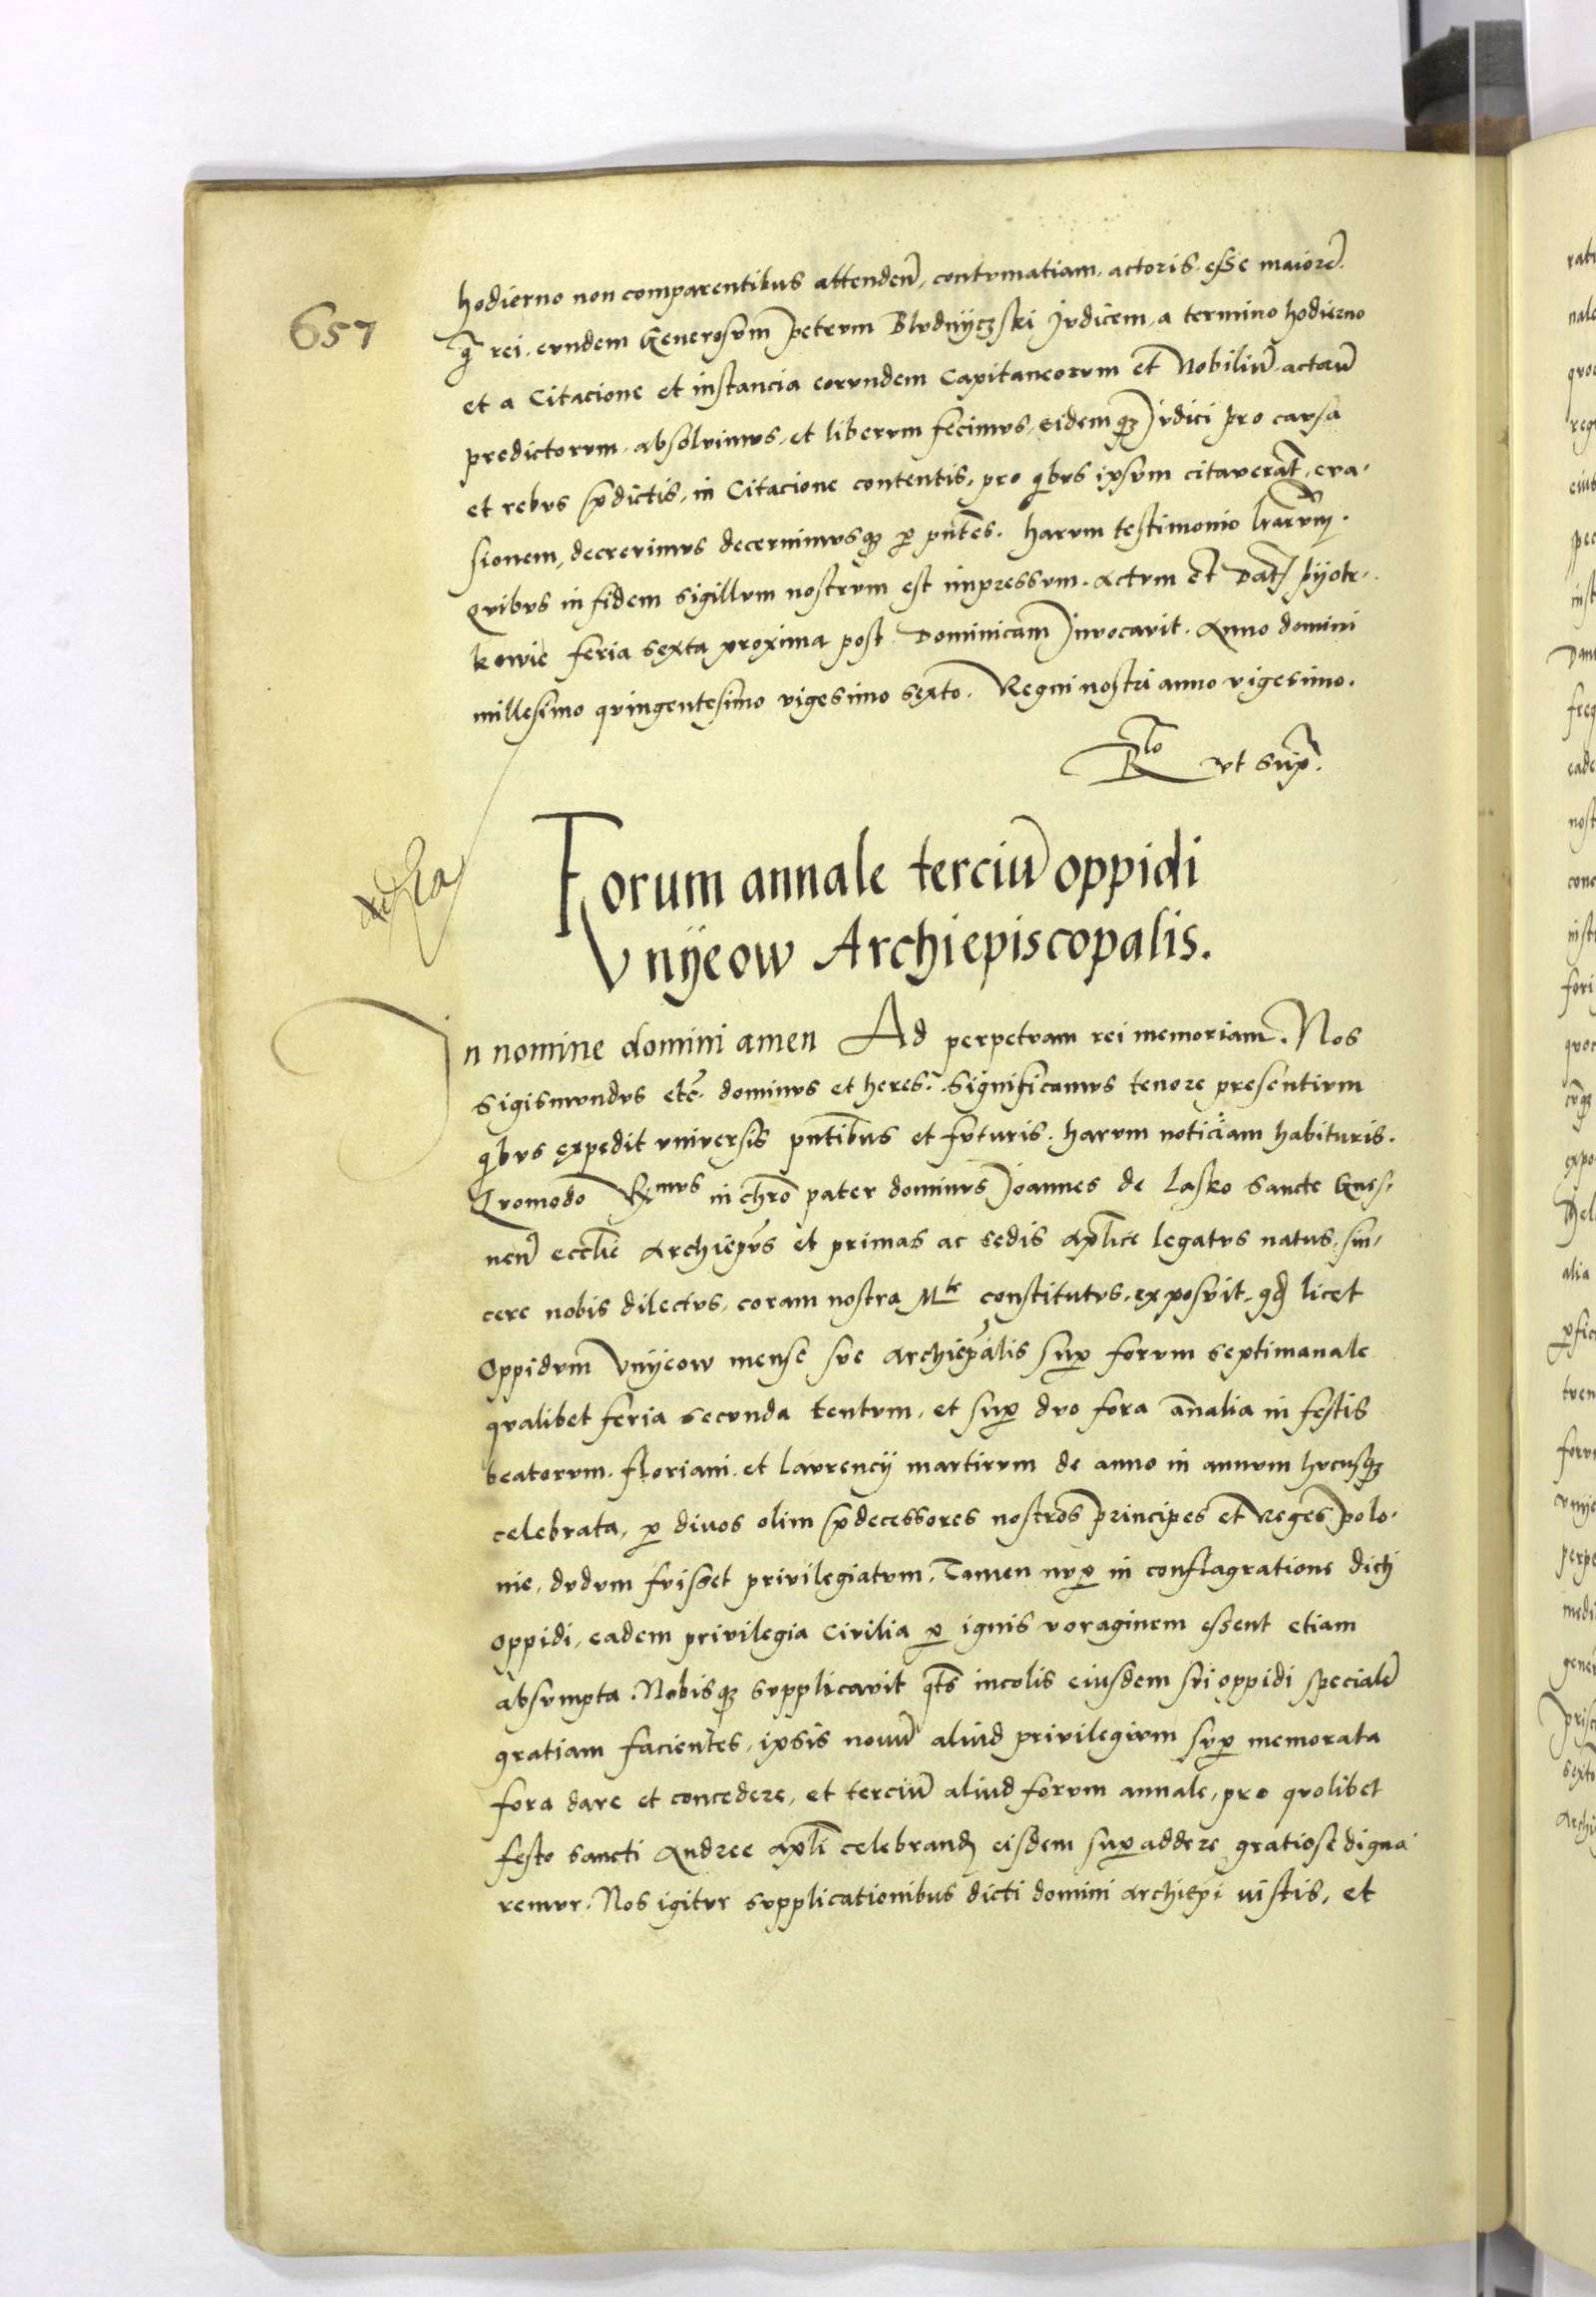 657
hodierno non comparentibus attendeñ, contumatiam, actoris esse maiorē
q̃ rei, eundem Generosum Petrum Bludnÿczski Judicem, a termino hodierno
et a Citacione et instancia eorundem Capitaneorum et Nobiliũ actorũ
predictorum, absoluimus, et liberum fecimus, eidemqꝫ iudici pro causa
et rebus p̃dictis, in Citacione contentis, pro q̃bus ipsum citauerat, eua-
sionem, decreuimus decernimusqꝫ ꝑ pñtes. harum testimonio lr̃arum.
Quibus in fidem sigillum nostrum est impressum. Actum et Dat Pÿotr-
kowie feria sexta proxima post Dominicam Inuocauit. Anno domini
millesimo quingentesimo vigesimo sexto. Regni nostri anno vigesimo.
Rlo vt supꝝ.
Forum annale terciũ oppidi
Vnÿeow Archiepiscopalis.
In nomine domini amen Ad perpetuam rei memoriam. Nos
Sigismundus etc̃. dominus et heres. Significamus tenore presentium
q̃bus expedit vniuersis pñtibus et futuris. harum noticiam habituris.
Quomodo Rx̃mus in chr̃o pater dominus Joannes de Lasko Sancte Gnes-
neñ eccl̃ie Archiep̃us et primas ac sedis apl̃ice legatus natus, sin-
cere nobis dilectus, coram nostra Mte constitutus, exposuit, qd̃ licet
Oppidum Vnÿeow mense sue Archiep̃alis suꝑ forum septimanale
qualibet feria secunda tentum, et suꝑ duo fora ãnalia in festis
beatorum. floriani. et laurencÿ martirum de anno in annum hucusqꝫ
celebrata, ꝑ diuos olim p̃decessores nostros Principes et Reges Polo-
nie, dudum fuisset priuilegiatum, Tamen nuꝑ in conflagratione dicti
oppidi, eadem priuilegia Ciuilia ꝑ ignis voraginem essent etiam
absumpta. Nobisqꝫ supplicauit q̃ts incolis eiusdem sui oppidi specialē
gratiam facientes, ipsis nouũ aliud priuilegium suꝑ memorata
fora dare et concedere, et terciũ aliud forum annale, pro quolibet
festo sancti Andree apl̃i celebrand eisdem suꝑaddere gratiose digna-
remur. Nos igitur supplicationibus dicti domini Archiep̃i iustis, et